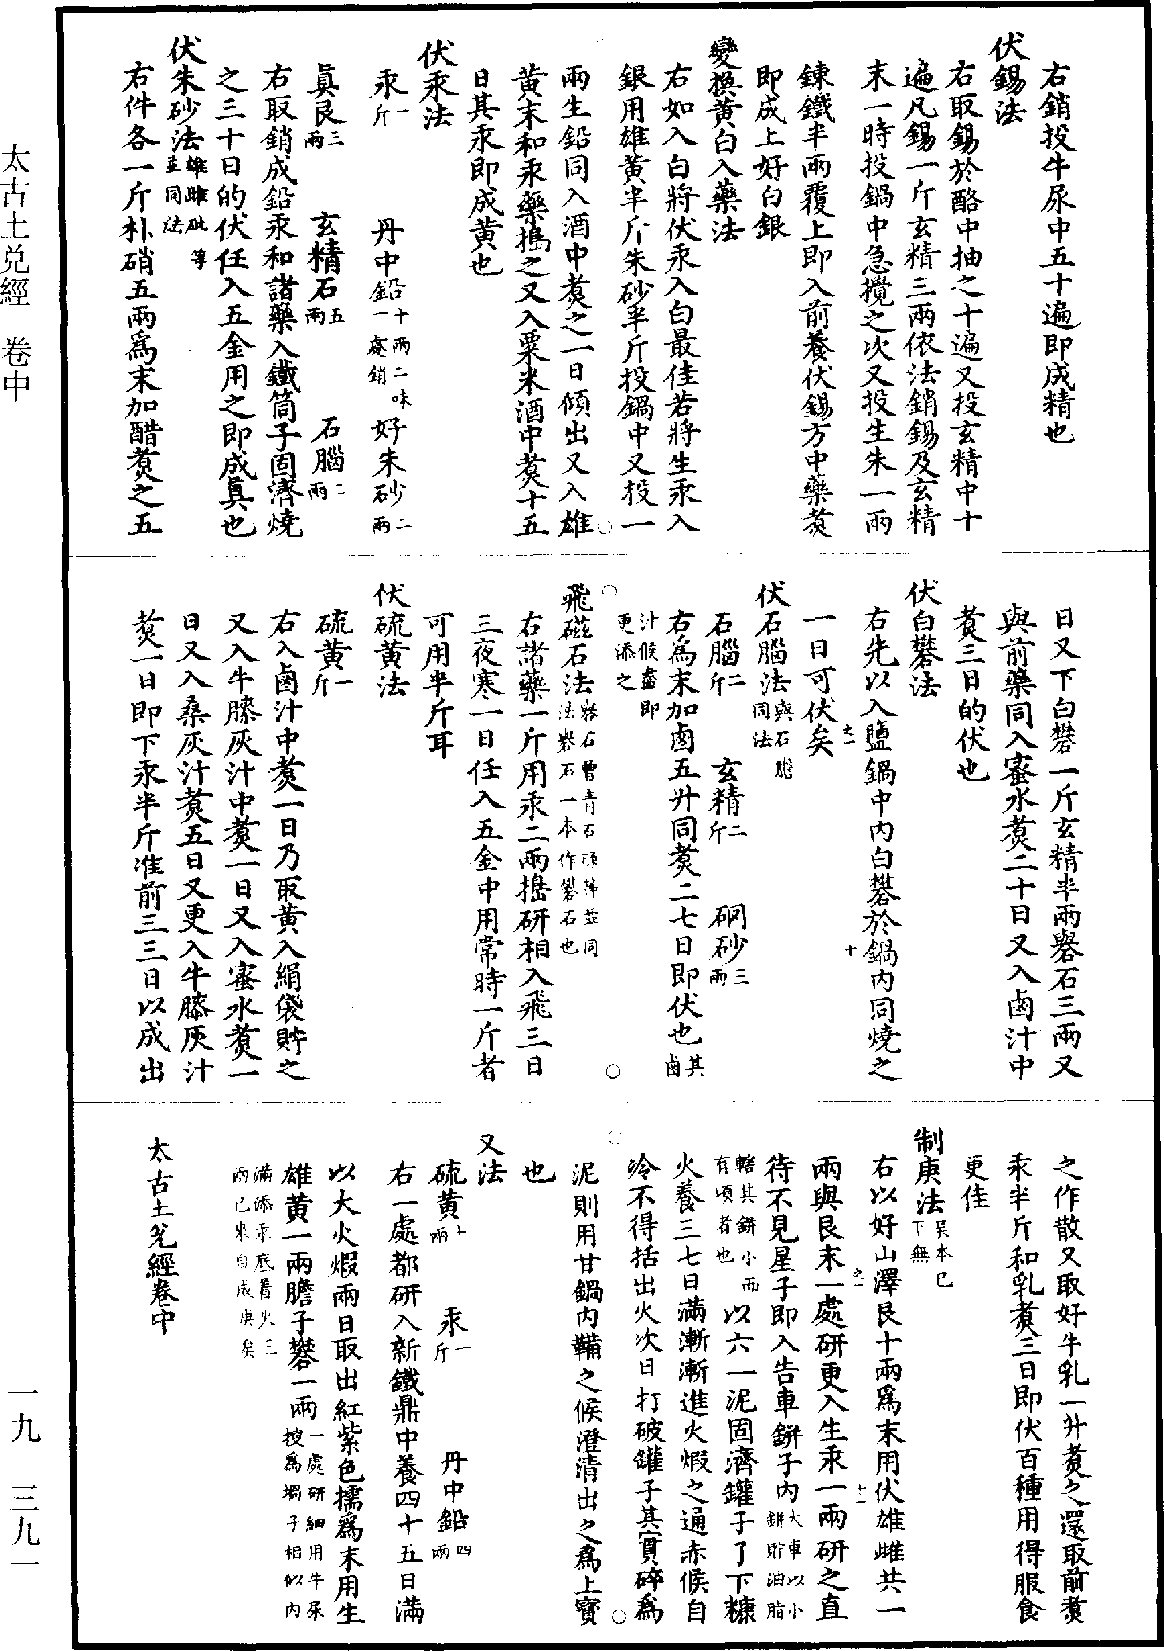 太古土兌經　卷中
右銷投牛尿中五十遍即成精也
伏錫法
右取錫於酪中抽之十遍又投玄精中十
遍凡錫一斤玄精三兩依法銷錫及玄精
末一時投鍋中急攪之次又投生朱一兩
鍊鐵半兩覆上即入前養伏錫方中藥煑
即成上好白銀
變換黃白入藥法
右如入白將伏汞入白最佳若將生汞入
銀用雄黃半斤朱砂半斤投鍋中又投一
兩生鉛同入酒中煑之一日傾出又入雄
黃末和汞藥搗之又入粟米酒中煑十五
日其汞即成黃也
伏汞法
汞一斤　丹中鉛十兩二味一處銷　好朱砂二兩
真艮三兩　玄精石五兩　石腦二兩
右取銷成鉛汞和諸藥入鐵筒子固濟燒
之三十日的伏任入五金用之即成真也
伏朱砂法雄雌砒等並同法
右件各一斤朴硝五兩爲末加醋煑之五
日又下白礬一斤玄精半兩礜石三兩又
與前藥同入蜜水煑二十日又入鹵汁中
煑三日的伏也
伏白礬法
右先以入鹽鍋中內白礬於鍋內同燒之
一日可伏矣
伏石腦法與石膽同法
石腦二斤　玄精二斤　硇砂三兩
右爲末加鹵五升同煑二七日即伏也其鹵
汁候盡即更添之
飛磁石法礜石曾青石頭等並同法礜石一本作礬石也
右諸藥一斤用汞二兩搗研相入飛三日
三夜寒一日任入五金中用常時一斤者
可用半斤耳
伏硫黃法
硫黃一斤
右入鹵汁中煑一日乃取黃入絹袋貯之
又入牛膝灰汁中煑一日又入蜜水煑一
日又入桑灰汁煑五日又更入牛膝灰汁
煑一日即下汞半斤准前三三日以成出
之作散又取好牛乳一升煑之還取前煑
汞半斤和乳煑三日即伏百種用得服食
更佳
制庚法吴本已下無
右以好山澤艮十兩爲末用伏雄雌共一
兩與艮末一處研更入生汞一兩研之直
待不見星子即入告車餅子內大車以小餅貯油脂
轄其餅小而有頃者也以六一泥固濟罐子了下糠
火養三七日滿漸漸進火煅之通赤候自
冷不得括出火次日打破罐子其實碎爲
泥則用甘鍋內鞴之候澄清出之爲上寳
也
又法
硫黃十兩　汞一斤　丹中鉛四兩
右一處都研入新鐵鼎中養四十五日滿
以大火煅兩日取出紅紫色擣爲末用生
雄黃一兩膽子礬一兩一處研細用牛尿搜爲堝子相似內
滿添汞底着火三兩已來自成庚矣
太古土兌經卷中
一九　三九一